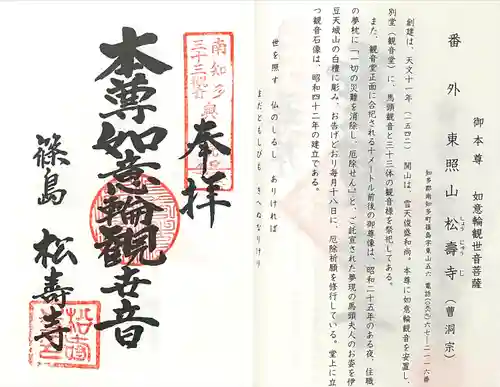 番外 東照山 松壽寺(曹洞宗)
しょう じゅう じ
御本尊 如意輪観世音菩薩
知多郡南知多町篠島字東山五六
創建は、天文十一年(一五四二) 開山は、雪天俊盛和尚。本尊に如意輪観音を安置し、
別堂(観音堂)に、馬頭観音と三十三体の観音様を祭祀してある。
また、観音堂正面に合祀される十メートル前後の御尊像は、昭和二十五年のある夜、住職
の夢枕に「一切の災難を消除し、厄除せん」と、ご託宣された夢現の馬頭夫人のお姿を伊
豆天城山の白檀に彫み、お告げどおり毎月十八日に、厄除祈願を修行している。堂上に立
つ観音石像は、昭和四十二年の建立である。
世を照す 仏のしるし ありければ
まだともしびも きへぬなりけり
南知多
三十三観音
奉拝
本尊如意輪観世音
篠島 松壽寺